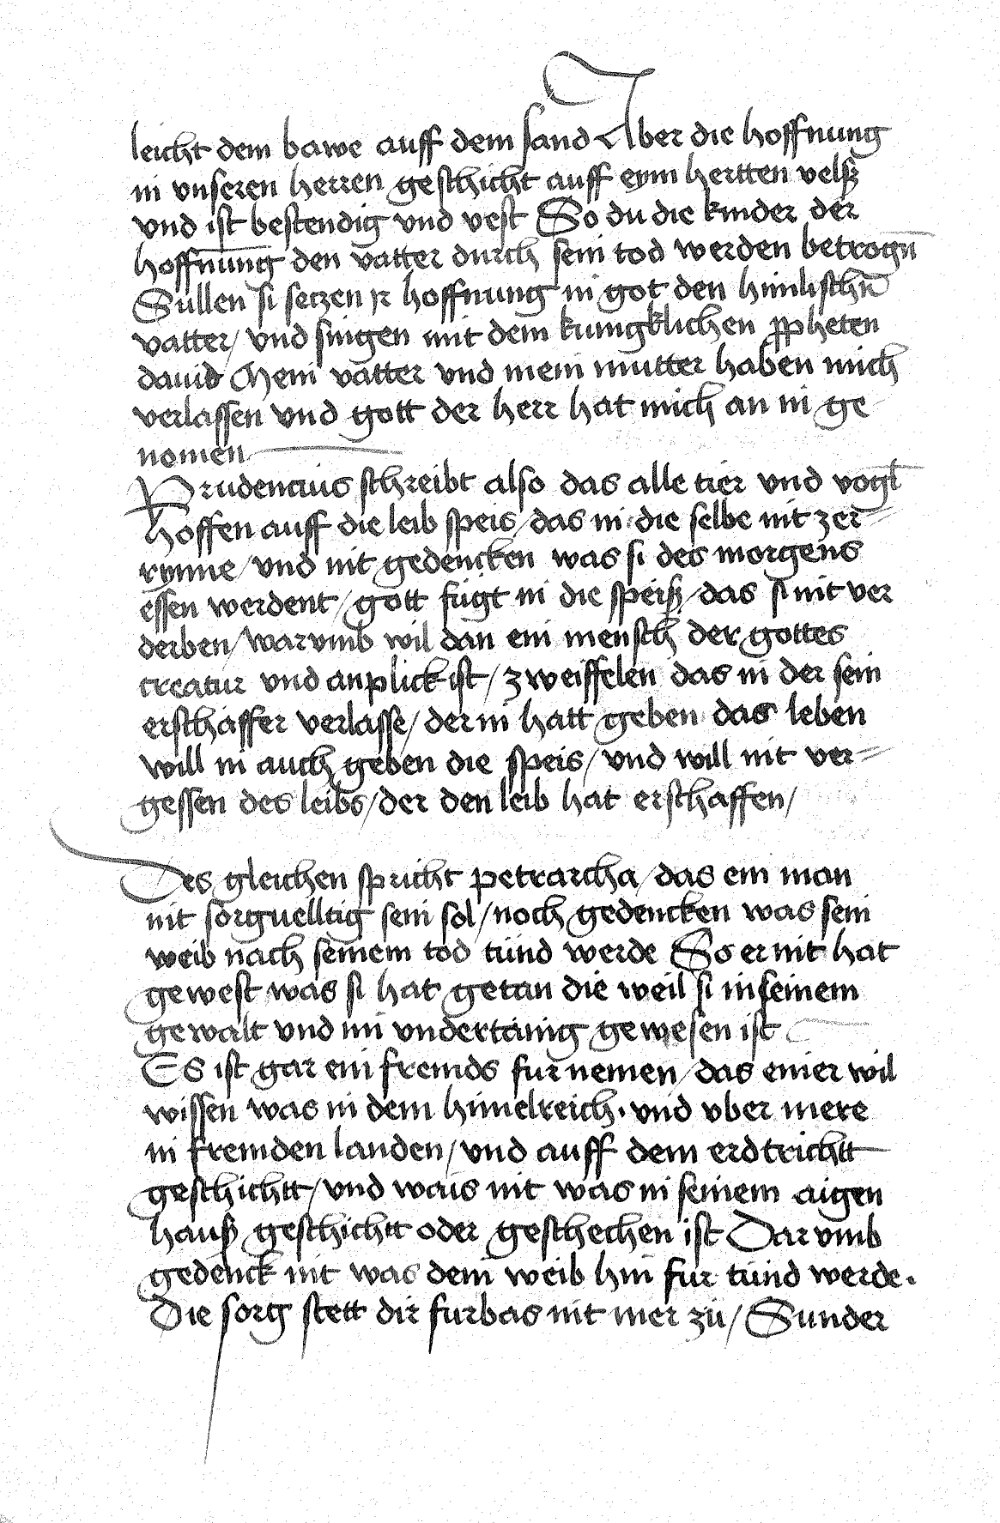 leicht dem bawe auff dem sand Aber die hoffnung
in vnseren herren geschicht auff eym hertten velsz
vnd ist bestendig vnd vest So du die kinder der
hoffnūng den vatter durch sein tod werden betrogn̄
Sullen si seczen ir hoffnung in got den himlischn̄
vatter / vnd singen mit dem kungklichen ꝓpheten
dauid Mein vatter vnd mein mutter haben mich
verlassen vnd gott der herr hat mich an in ge
nomen
Prudencius schreibt also das alle tier vnd vogl̄
hoffen auff die leib speis / das in die selbe nit zer=
rynne / vnd nit gedencken was si des morgens
essen werdent / gott fügt in die speisz / das si nit ver
derben / warvmb wil dan ein mensch der gottes
creatur vnd anplick ist / zweiffelen das in der sein
erschaffer verlasse / der in hatt geben das leben
will in auch geben die speis / vnd will nit ver=
gessen des leibs / der den leib hat erschaffen /
Des gleichen spricht petrarcha / das ein man
nit sorguelltig sein sol / noch gedencken was sein
weib nach seinem tod tünd werde So er nit hat
gewest was si hat getan die weil si in seinem
gewalt vnd im vndertänig gewesen ist
Es ist gar ein fremds furnemen / das einer wil
wissen was in dem himelreich · vnd vber mere
in fremden landen / vnd auff dem erdtrichtt
geschichtt / vnd wais nit was in seinem aigen
hausz geschichtt oder geschechen ist Darvmb
gedenck nit was dein weib hin für tünd werde ·
Die sorg stett dir furbas nit mer zü / Sunder